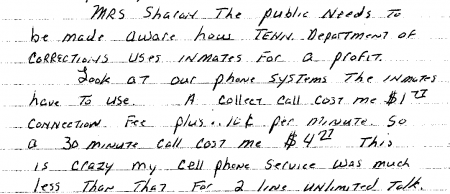 MRS Sharon The public Needs To
be made aware how TENN. Department of
CORRECTIONS USES INMATES FOR a profit.
Look at our phone SYSTEMS The INMATES
have To use. A collect call cost me $1
CONNECTION. Fee plus .10¢ per minute. So
a 30 minute call cost me $4 This
is crazy my cell phone service was much
less Than That For 2 line unlimited Talk.